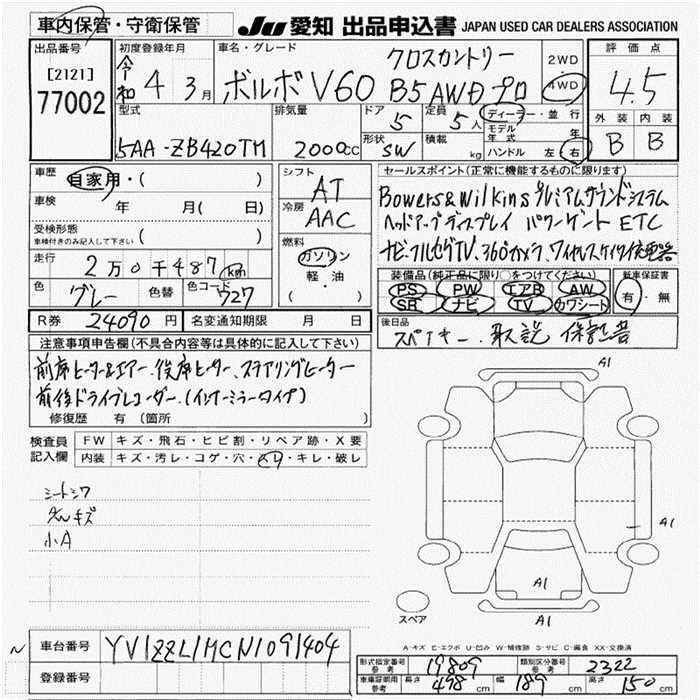 車内保管・守衛保管
JU 愛知 出品申込書 JAPAN USED CAR DEALERS ASSOCIATION
出品番号
[2121]
77002
初度登録年月
令和 4 3月
車名・グレード
クロスカントリー
ボルボ V60 B5 AWD プロ
2WD
4WD
評価点
4.5
外装 内装
B B
型式
5AA-ZB420TM
排気量
2000cc
ドア 5
形状 SW
定員 5人
積載 kg
ディーラー・並行
モデル年式 年
ハンドル 左 右
車歴
自家用・( )
車検 年 月( 日)
受検形態
車検付きのみ記入して下さい ( )
走行
2万0千487km
色 グレー 色替 色コード 727
シフト
AT
冷房
AAC
燃料
ガソリン
軽・油
( ・ )
セールスポイント(正常に機能するものに限ります)
Bowers&Wilkins プレミアムサウンドシステム
ヘッドアップディスプレイ パワーゲート ETC
ナビ・フルセグTV、360°カメラ、ワイヤレススマイ充電器
装備品(純正品に限り○をつけてください)
PS PW エアB AW
SR ナビ TV カワシート
新車保証書
有・無
R券 24090円 名変通知期限 月 日
後日品
スペアキー、取説 保証書
注意事項申告欄(不具合内容等は具体的に記入して下さい)
前席ヒーター&エアー、後席ヒーター、ステアリングヒーター
前後ドライブレコーダー、(インナーミラータイプ)
修復歴 有 (箇所 )
検査員記入欄
FW キズ・飛石・ヒビ割・リペア跡・X要
内装 キズ・汚レ・コゲ・穴・スレ・キレ・破レ
シートシワ
キズ
小A
A1
A1
A1
A1
スペア
A・キズ E・エクボ U・凹み W・補修跡 S・サビ C・腐食 XX・交換済
車台番号 YV1ZZL1MCN1091404
登録番号
形式指定番号 参考 19809 類別区分番号 参考 2322
車庫証明用 参考 長さ 498cm 幅 189cm 高さ 150cm